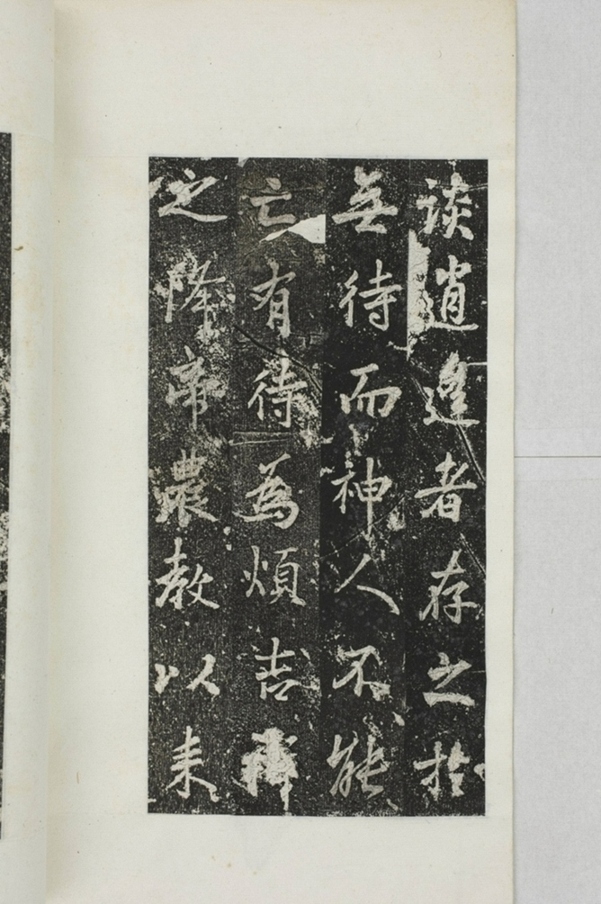 談逍遥者存之於
無待而神人不能
亡有待為煩吉
之降帝農教以耒